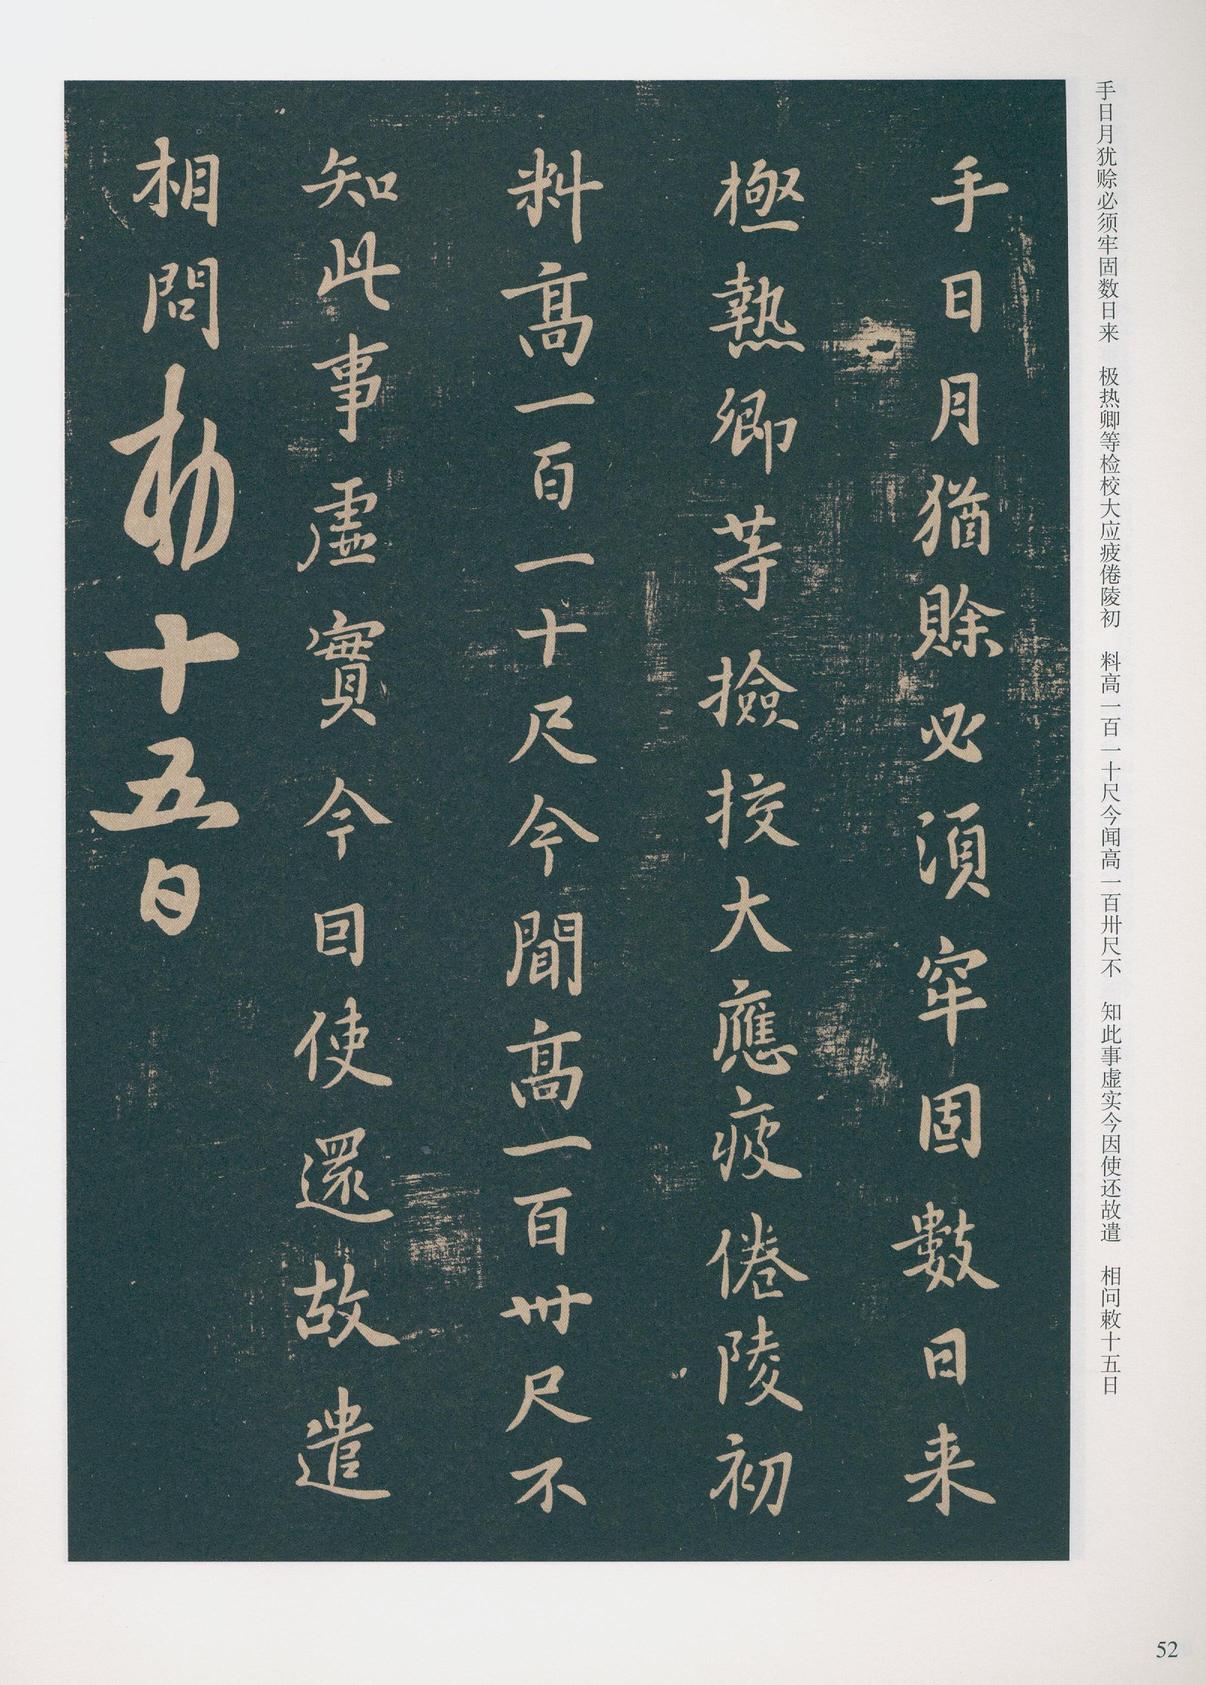 手日月猶賒必須牢固數日来
極熱卿等撿挍大應疲倦陵初
料高一百一十尺今聞高一百卅尺不
知此事虛實今因使還故遣
相問勑十五日
手日月犹赊必须牢固数日来 极热卿等检校大应疲倦陵初 料高一百一十尺今闻高一百卅尺不 知此事虚实今因使还故遣 相问敕十五日
52